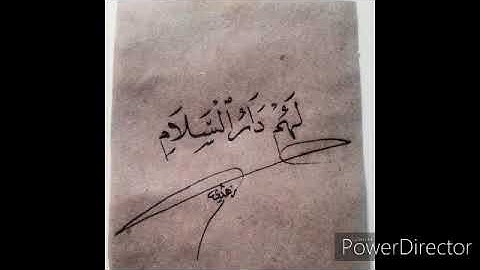 لَهُمْ دَارُ ٱلسَّلَامِ
PowerDirector